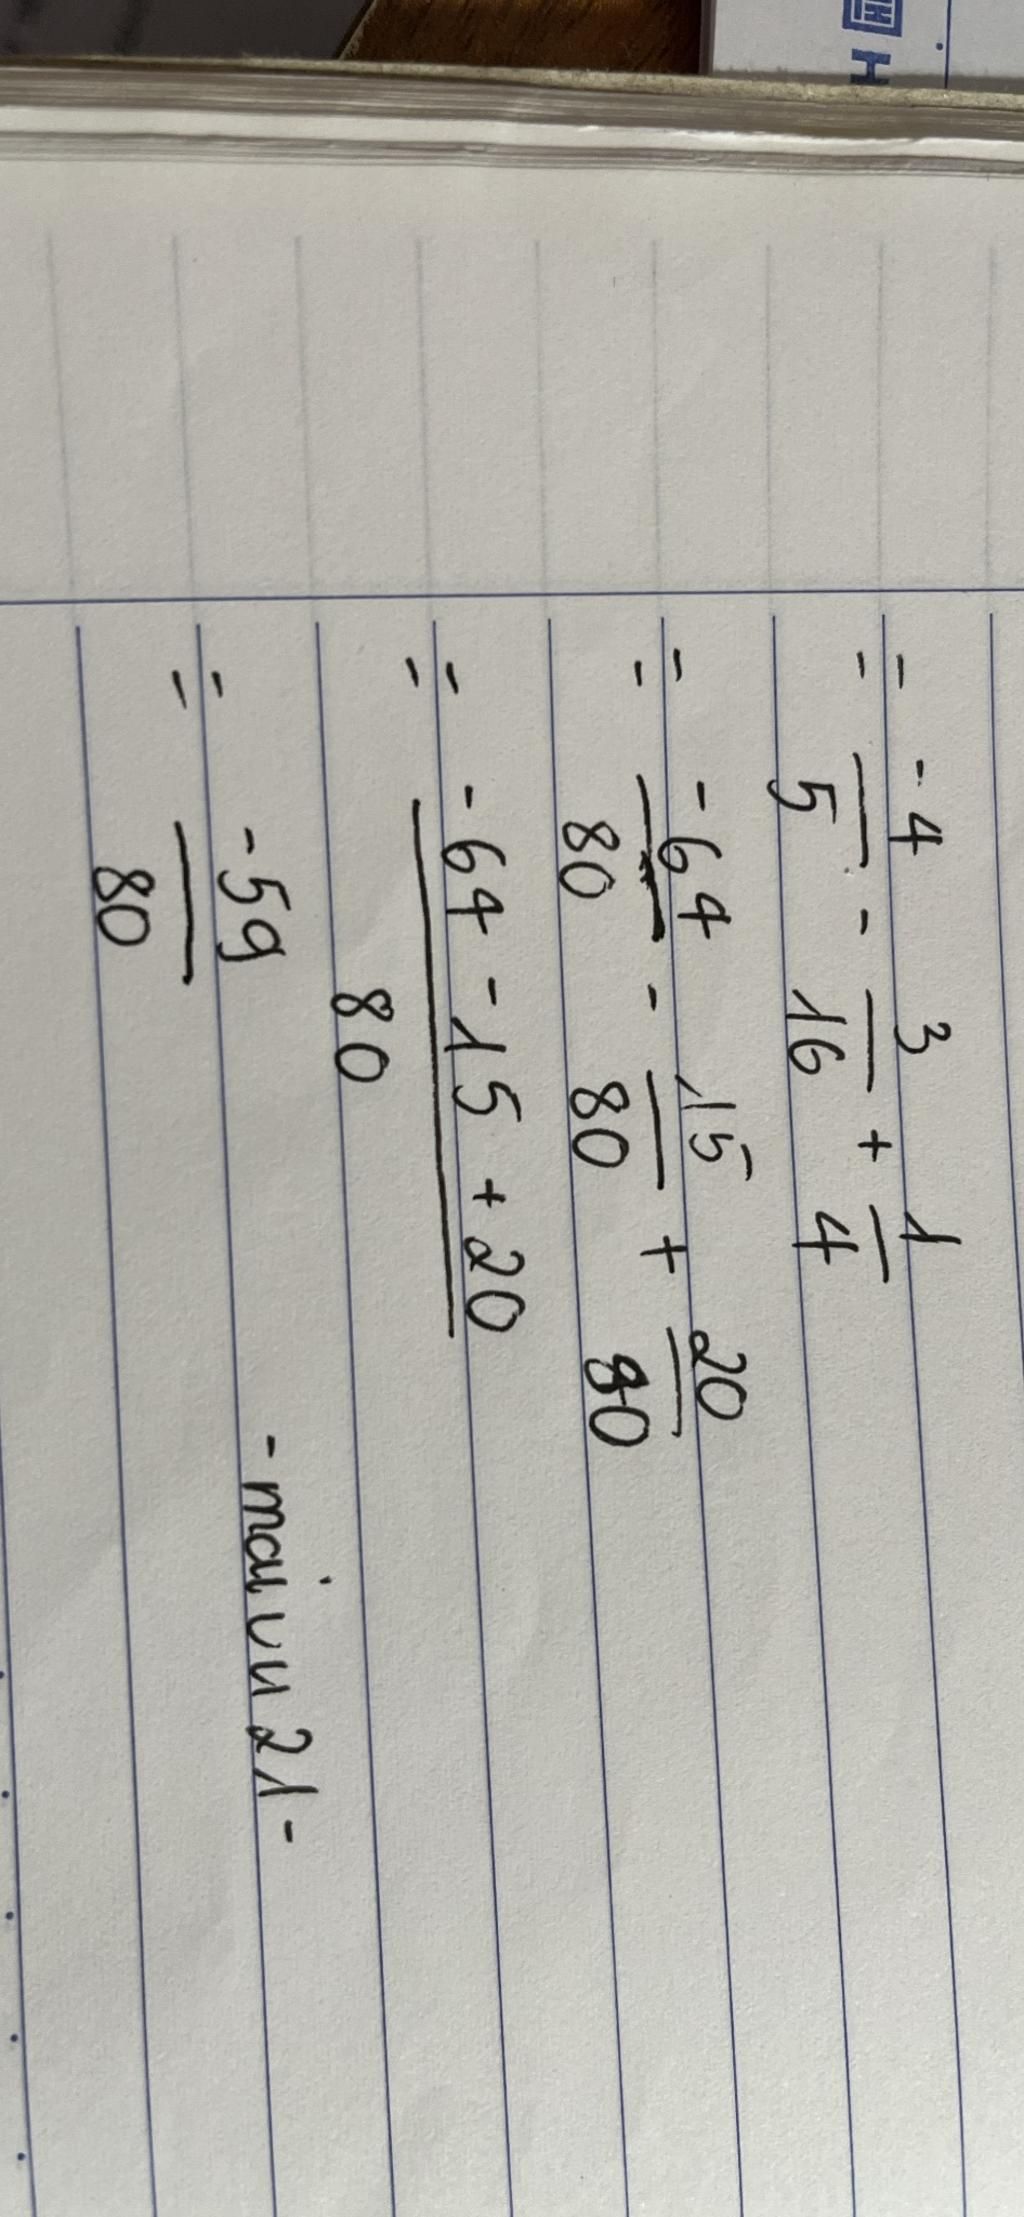 = -4/5 - 3/16 + 1/4
= -64/80 - 15/80 + 20/80
= -64 - 15 + 20 / 80
= -59/80
- maivu21-
H